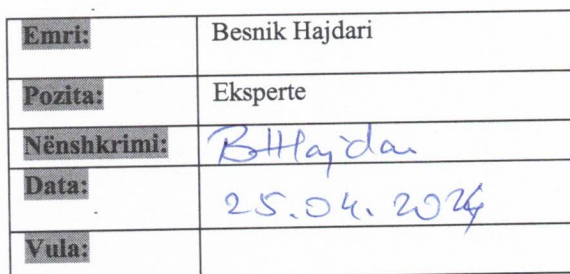 Emri: Besnik Hajdari
Pozita: Eksperte
Nënshkrimi: BHHajdari
Data: 25.04.2024
Vula: